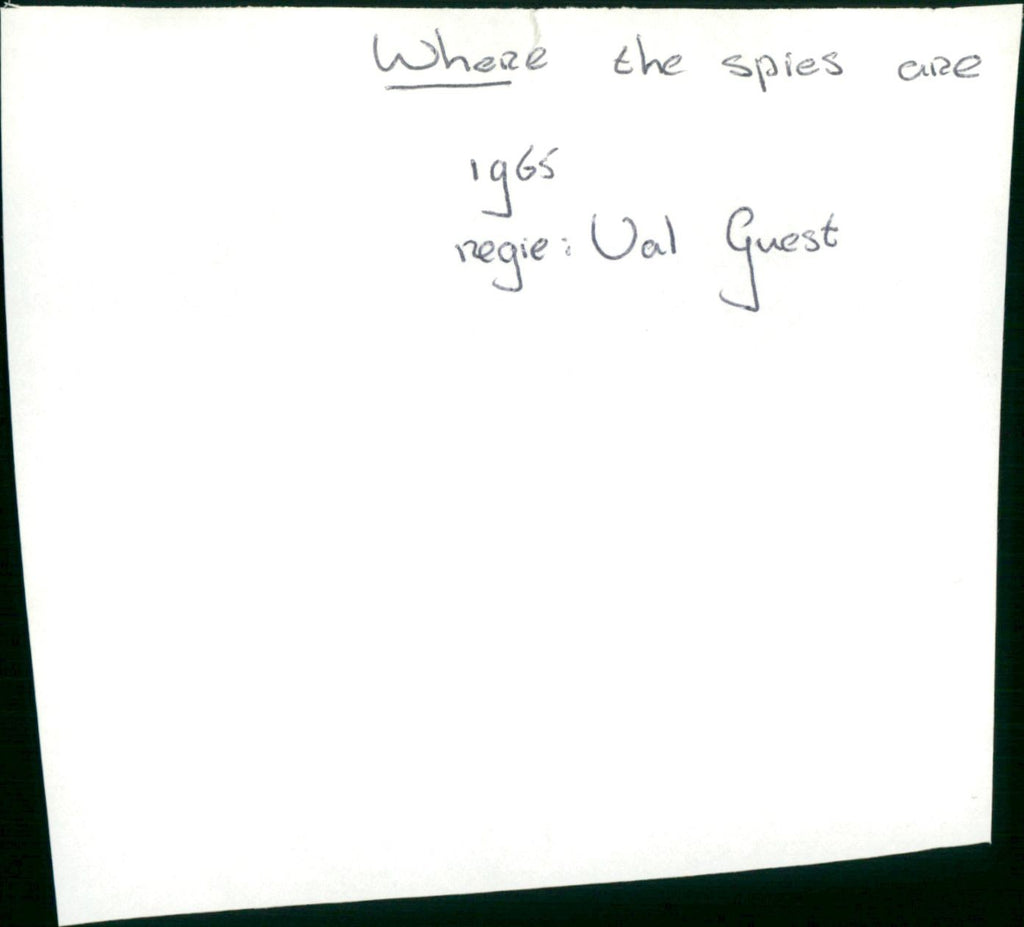 Where the spies are
1965
regie: Val Guest